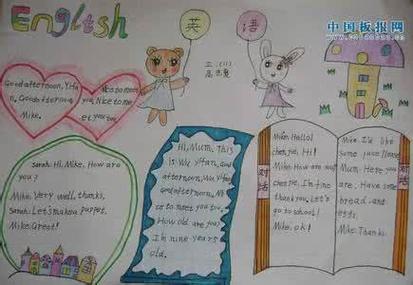 English
英
语
中国板报网
三、(1)
Good afternoon, Yifan.
Good afternoon,
Mike.
Nice to meet
you. Nice to
meet you too.
Sarah: Hi, Mike. How are
you?
Mike: Very well, thanks.
Sarah: Let's make a puppet.
Mike: Great!
Hi, Mum. This
is Wu Yifan.
afternoon, Wu Yifan.
good afternoon, Nice
to meet you too.
How old are you?
I'm nine years
old.
对话
Mike: Hello!
Hi!
Mike: How are you?
I'm fine
thank you. Let's
go to school!
Mike: ok!
Mike: I'd like
some juice Please.
Mum: Here you
are. Have some
bread.
Mike: Thanks.
对话